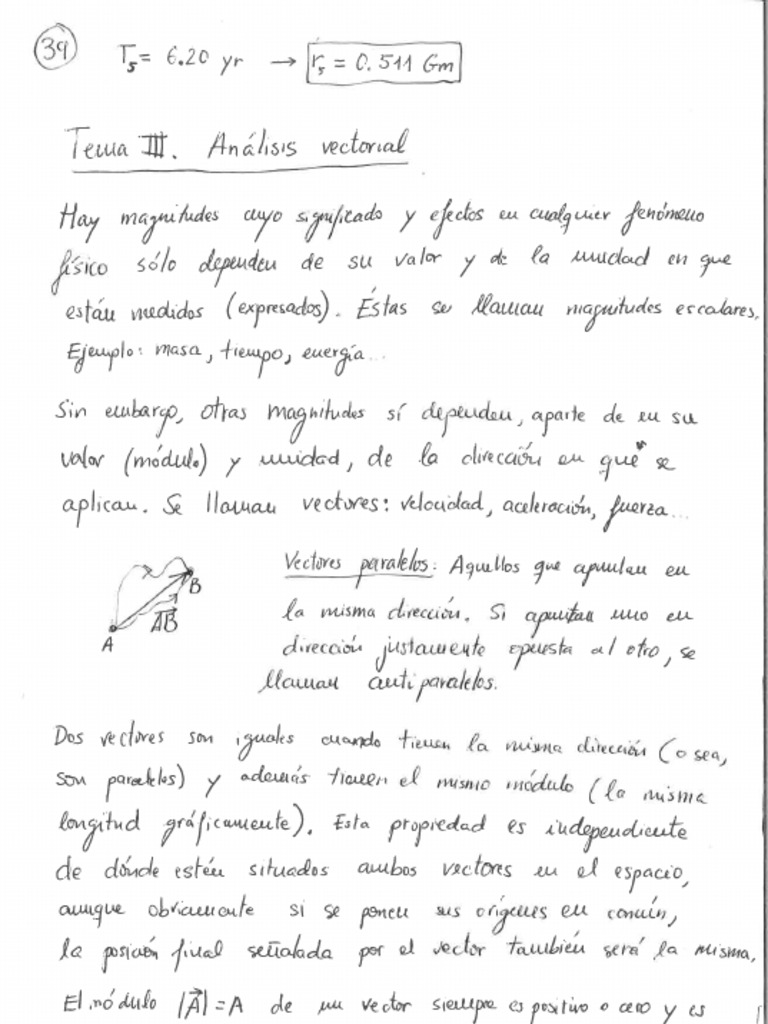 39
T5 = 6.20 yr → r5 = 0.511 Gm
Tema III. Análisis vectorial
Hay magnitudes cuyo significado y efectos en cualquier fenómeno
físico sólo dependen de su valor y de la unidad en que
están medidos (expresados). Éstas se llaman magnitudes escalares.
Ejemplo: masa, tiempo, energía...
Sin embargo, otras magnitudes sí dependen, aparte de en su
valor (módulo) y unidad, de la dirección en que se
aplican. Se llaman vectores: velocidad, aceleración, fuerza...
Vectores paralelos: Aquellos que apuntan en
la misma dirección. Si apuntan uno en
dirección justamente opuesta al otro, se
llaman antiparalelos.
A
B
AB
Dos vectores son iguales cuando tienen la misma dirección (o sea,
son paralelos) y además tienen el mismo módulo (la misma
longitud gráficamente). Esta propiedad es independiente
de dónde estén situados ambos vectores en el espacio,
aunque obviamente si se ponen sus orígenes en común,
la posición final señalada por el vector también será la misma.
El módulo |A⃗| = A de un vector siempre es positivo o cero y es